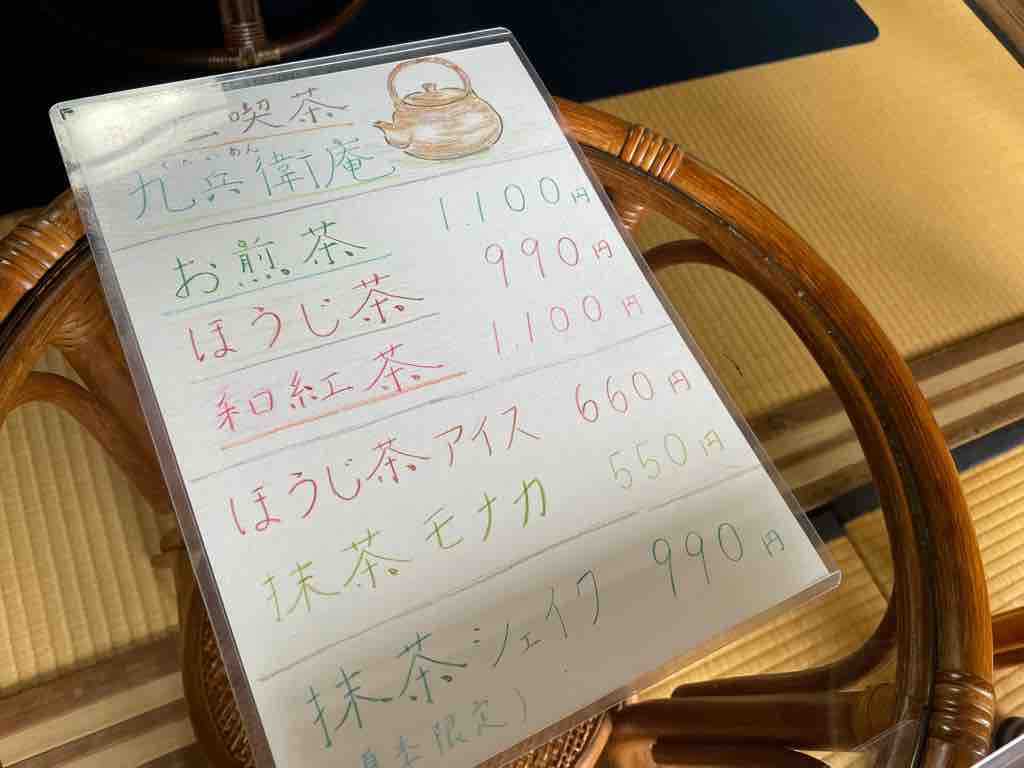 喫茶
九兵衛庵
お煎茶 1.100円
ほうじ茶 990円
和紅茶 1.100円
ほうじ茶アイス 660円
抹茶モナカ 550円
抹茶シェイク 990円
限定)